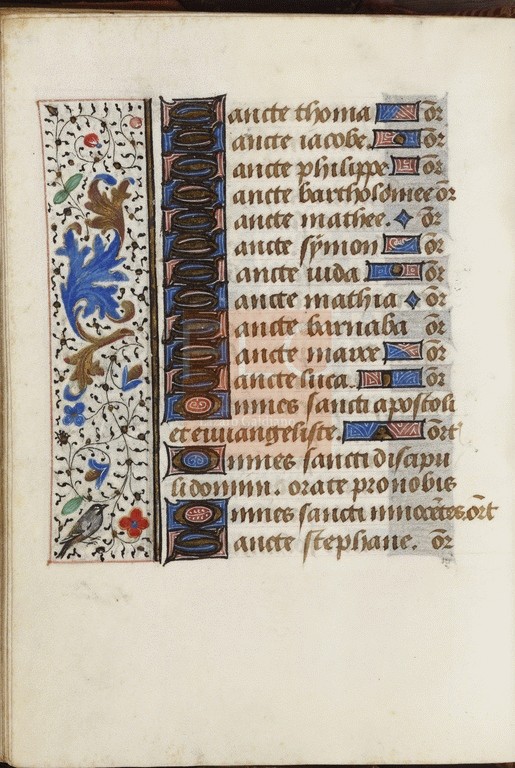 Sancte thoma or
Sancte iacobe or
Sancte philippe or
Sancte bartholomee or
Sancte mathee. or
Sancte symon or
Sancte iuda or
Sancte mathia or
Sancte barnaba or
Sancte marce or
Sancte luca. or
Omnes sancti apostoli
et euuangeliste. ort
Omnes sancti discipu
li domini. orate pro nobis
Omnes sancti innocẽtes. ort
Sancte stephane. or